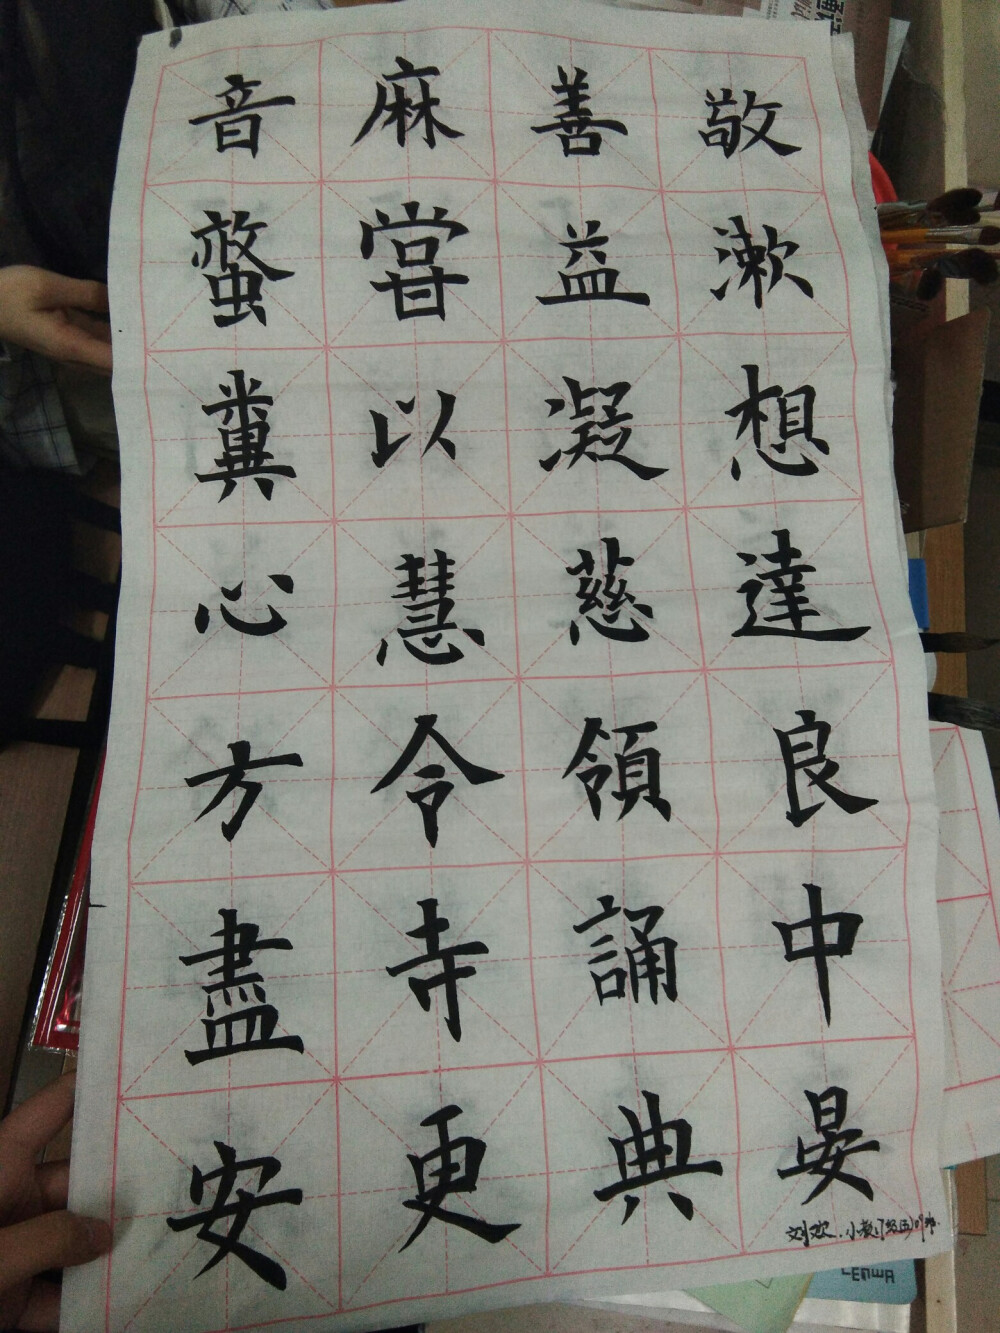 敬漱想達良中晏
善益凝慈領誦典
麻嘗以慧令寺更
音螫糞心方盡安
刘欢.小教